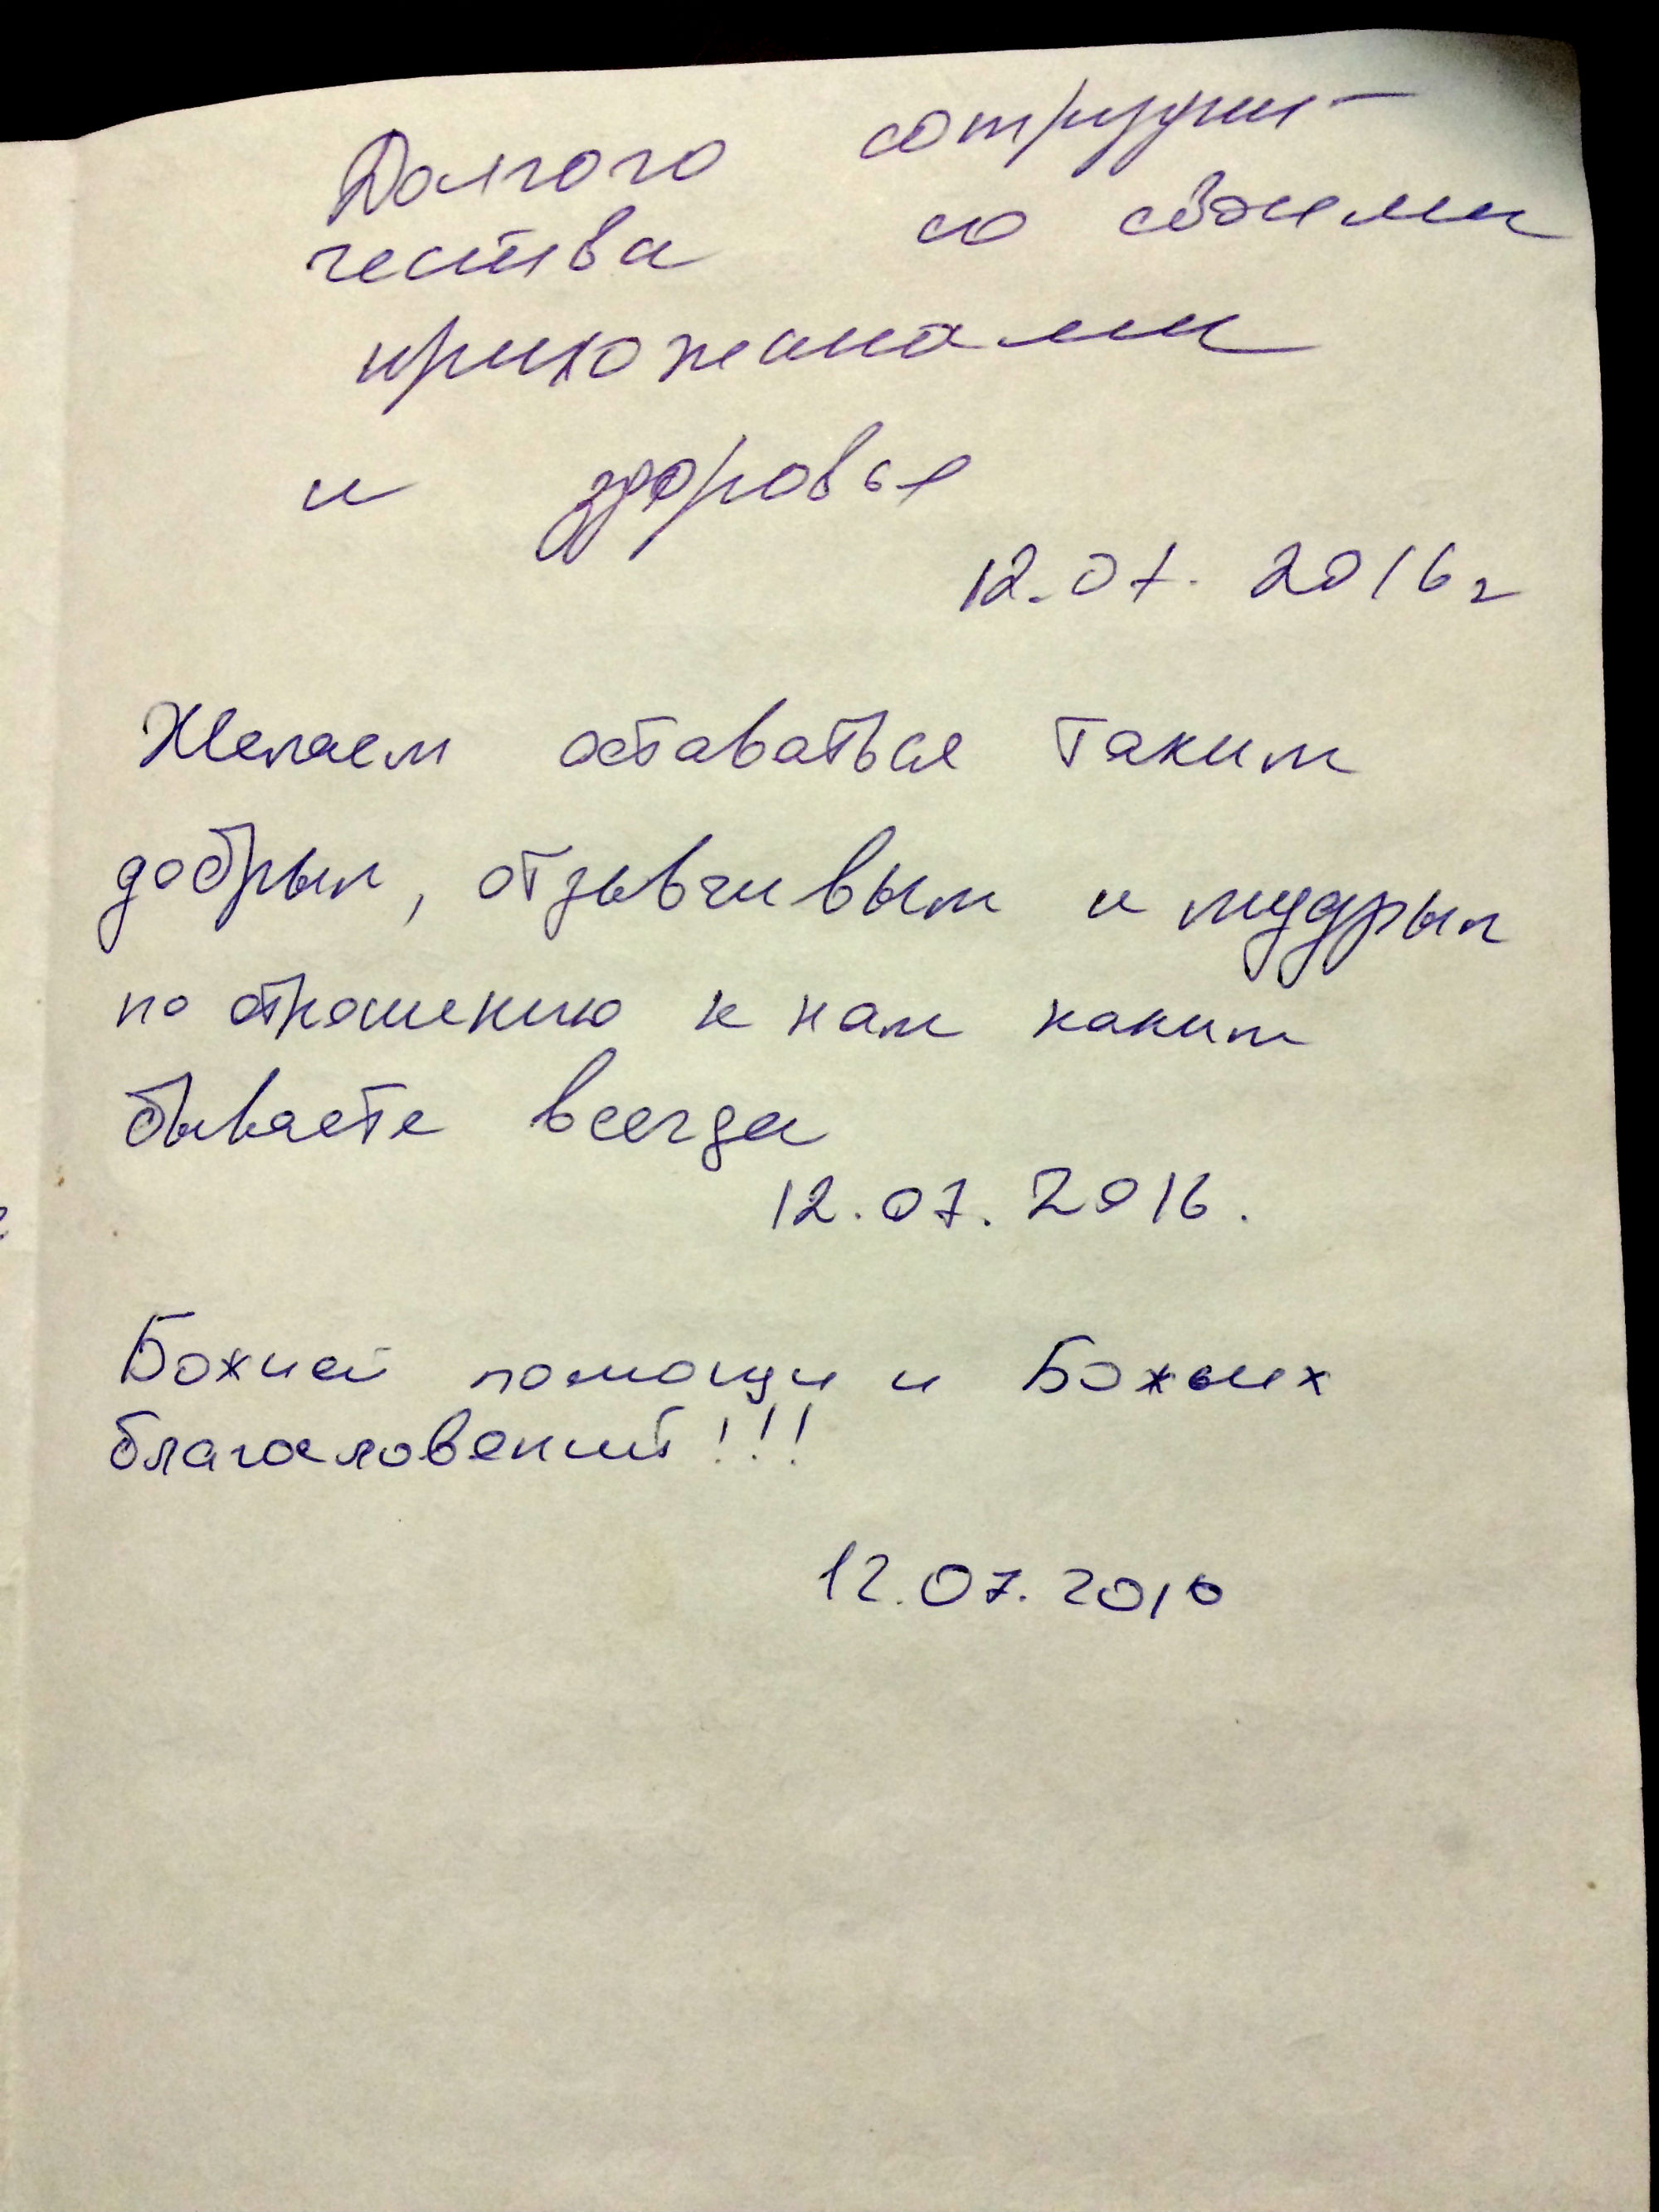 Долгого сотрудни-
чества со своими
прихожанами
и здоровье
12.07.2016г
Желаем оставаться таким
добрым, отзывчивым и мудрым
по отношению к нам каким
бываете всегда
12.07.2016.
Божией помощи и Божьих
благословений!!!
12.07.2016